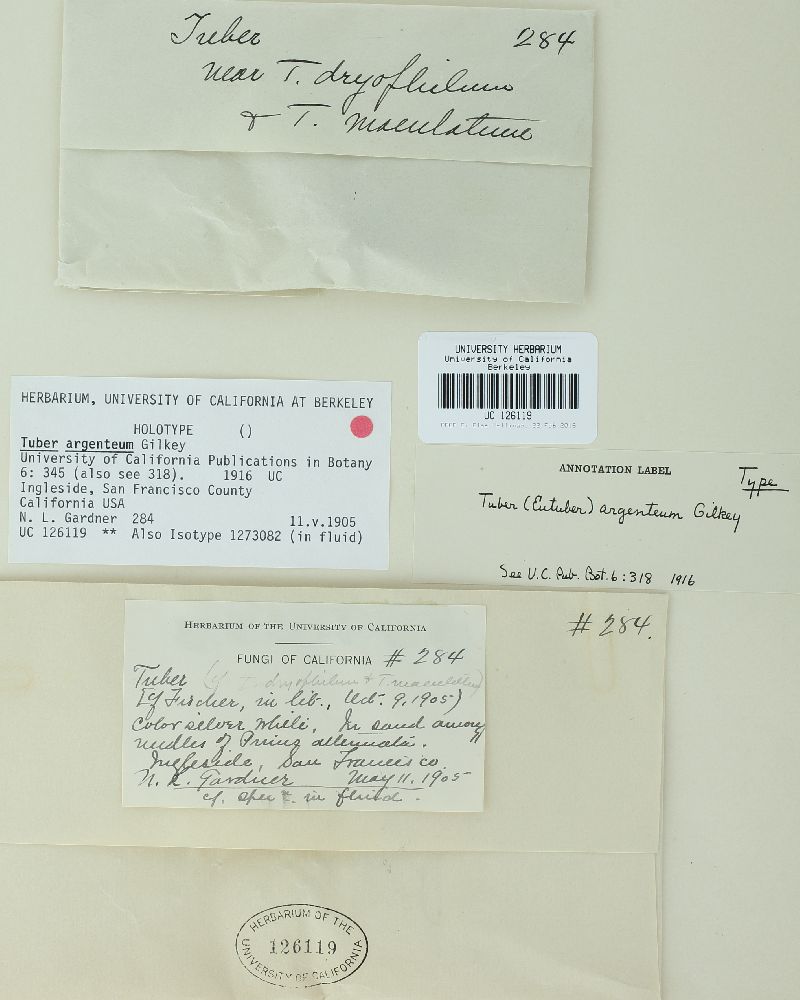 Tuber 284
near T. dryophilum
& T. maculatum
UNIVERSITY HERBARIUM
University of California
Berkeley
UC 126119
HERBARIUM, UNIVERSITY OF CALIFORNIA AT BERKELEY
HOLOTYPE ()
Tuber argenteum Gilkey
University of California Publications in Botany
6: 345 (also see 318). 1916 UC
Ingleside, San Francisco County
California USA
N. L. Gardner 284 11.v.1905
UC 126119 ** Also Isotype 1273082 (in fluid)
ANNOTATION LABEL Type
Tuber (Eutuber) argenteum Gilkey
See U.C. Pub. Bot. 6:318 1916
# 284.
HERBARIUM OF THE UNIVERSITY OF CALIFORNIA
FUNGI OF CALIFORNIA # 284
Tuber (cf T. dryophilum & T. maculatum)
Fischer, in lit., Oct. 9, 1905)
Color silver white. In sand among
needles of Pinus attenuata.
Ingleside, San Francisco
N. L. Gardner May 11. 1905
cf. spec. in fluid.
HERBARIUM OF THE
126119
UNIVERSITY OF CALIFORNIA